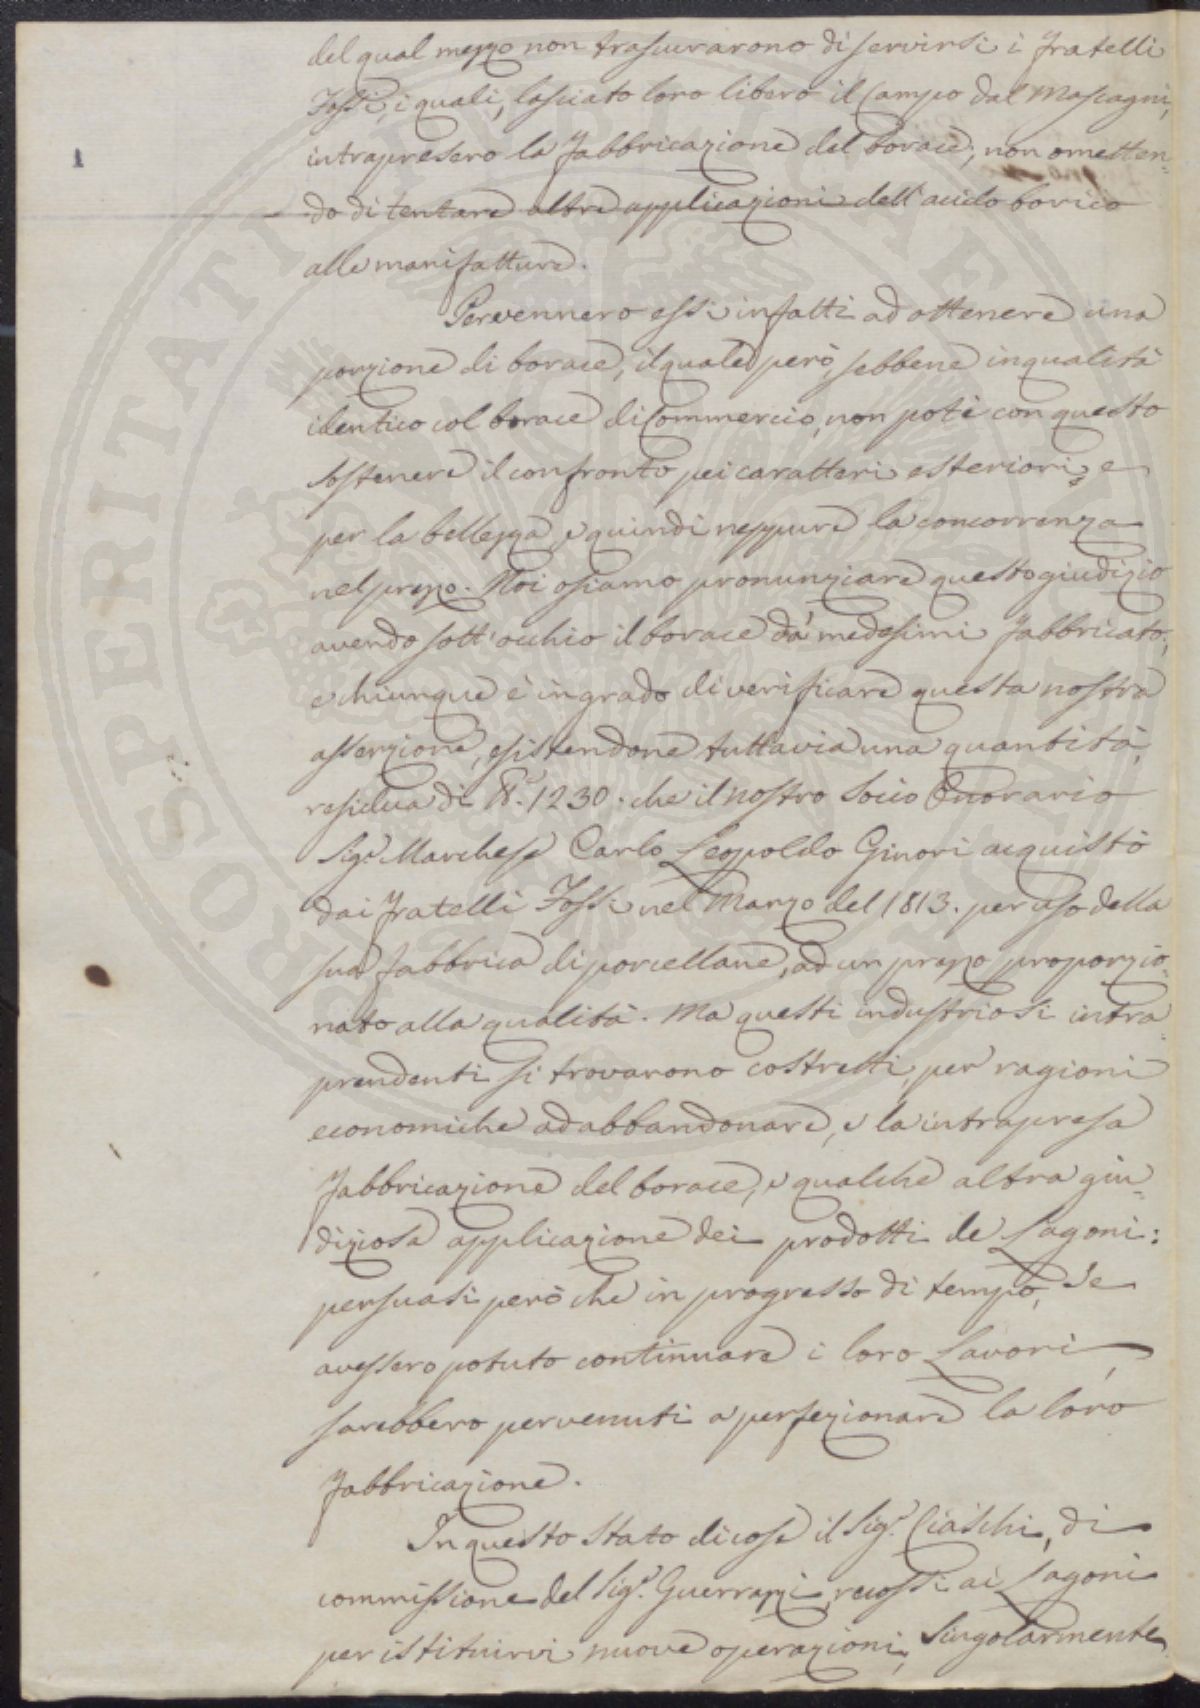 del qual mezzo non trascurarono di servirsi i fratelli
Fossi, i quali, lasciato loro libero il Campo dal Mascagni,
intrapresero la fabbricazione del borace, non ometten=
do di tentare altre applicazioni dell'acido borico
alle manifatture.
Pervennero essi infatti ad ottenere una
porzione di borace, il quale però, sebbene in qualità
identico col borace di Commercio, non potè con questo
sostenere il confronto pei caratteri esteriori, e
per la bellezza, e quindi neppure la concorrenza
nel prezzo. Noi osiamo pronunziare questo giudizio
avendo sott'occhio il borace da' medesimi fabbricato;
e chiunque è in grado di verificare questa nostra
asserzione, esistendone tuttavia una quantità
residua di 1230. che il nostro Socio Onorario
Sigr. Marchese Carlo Leopoldo Ginori acquistò
dai fratelli Fossi nel Marzo del 1813. per uso della
sua fabbrica di porcellane, ad un prezzo proporzio=
nato alla qualità. Ma questi industriosi intra=
prendenti si trovarono costretti, per ragioni
economiche ad abbandonare, e la intrapresa
fabbricazione del borace, e qualche altra giu=
diziosa applicazione dei prodotti de Lagoni:
persuasi però che in progresso di tempo, se
avessero potuto continuare i loro Lavori,
sarebbero pervenuti a perfezionare la loro
fabbricazione.
In questo stato di cose il Sigr. Ciaschi, di
commissione del Sigr. Guerrazzi, recossi ai Lagoni
per istituirvi nuove operazioni, singolarmente
1
PROSPERITATI PUBLICAE AUGENDAE